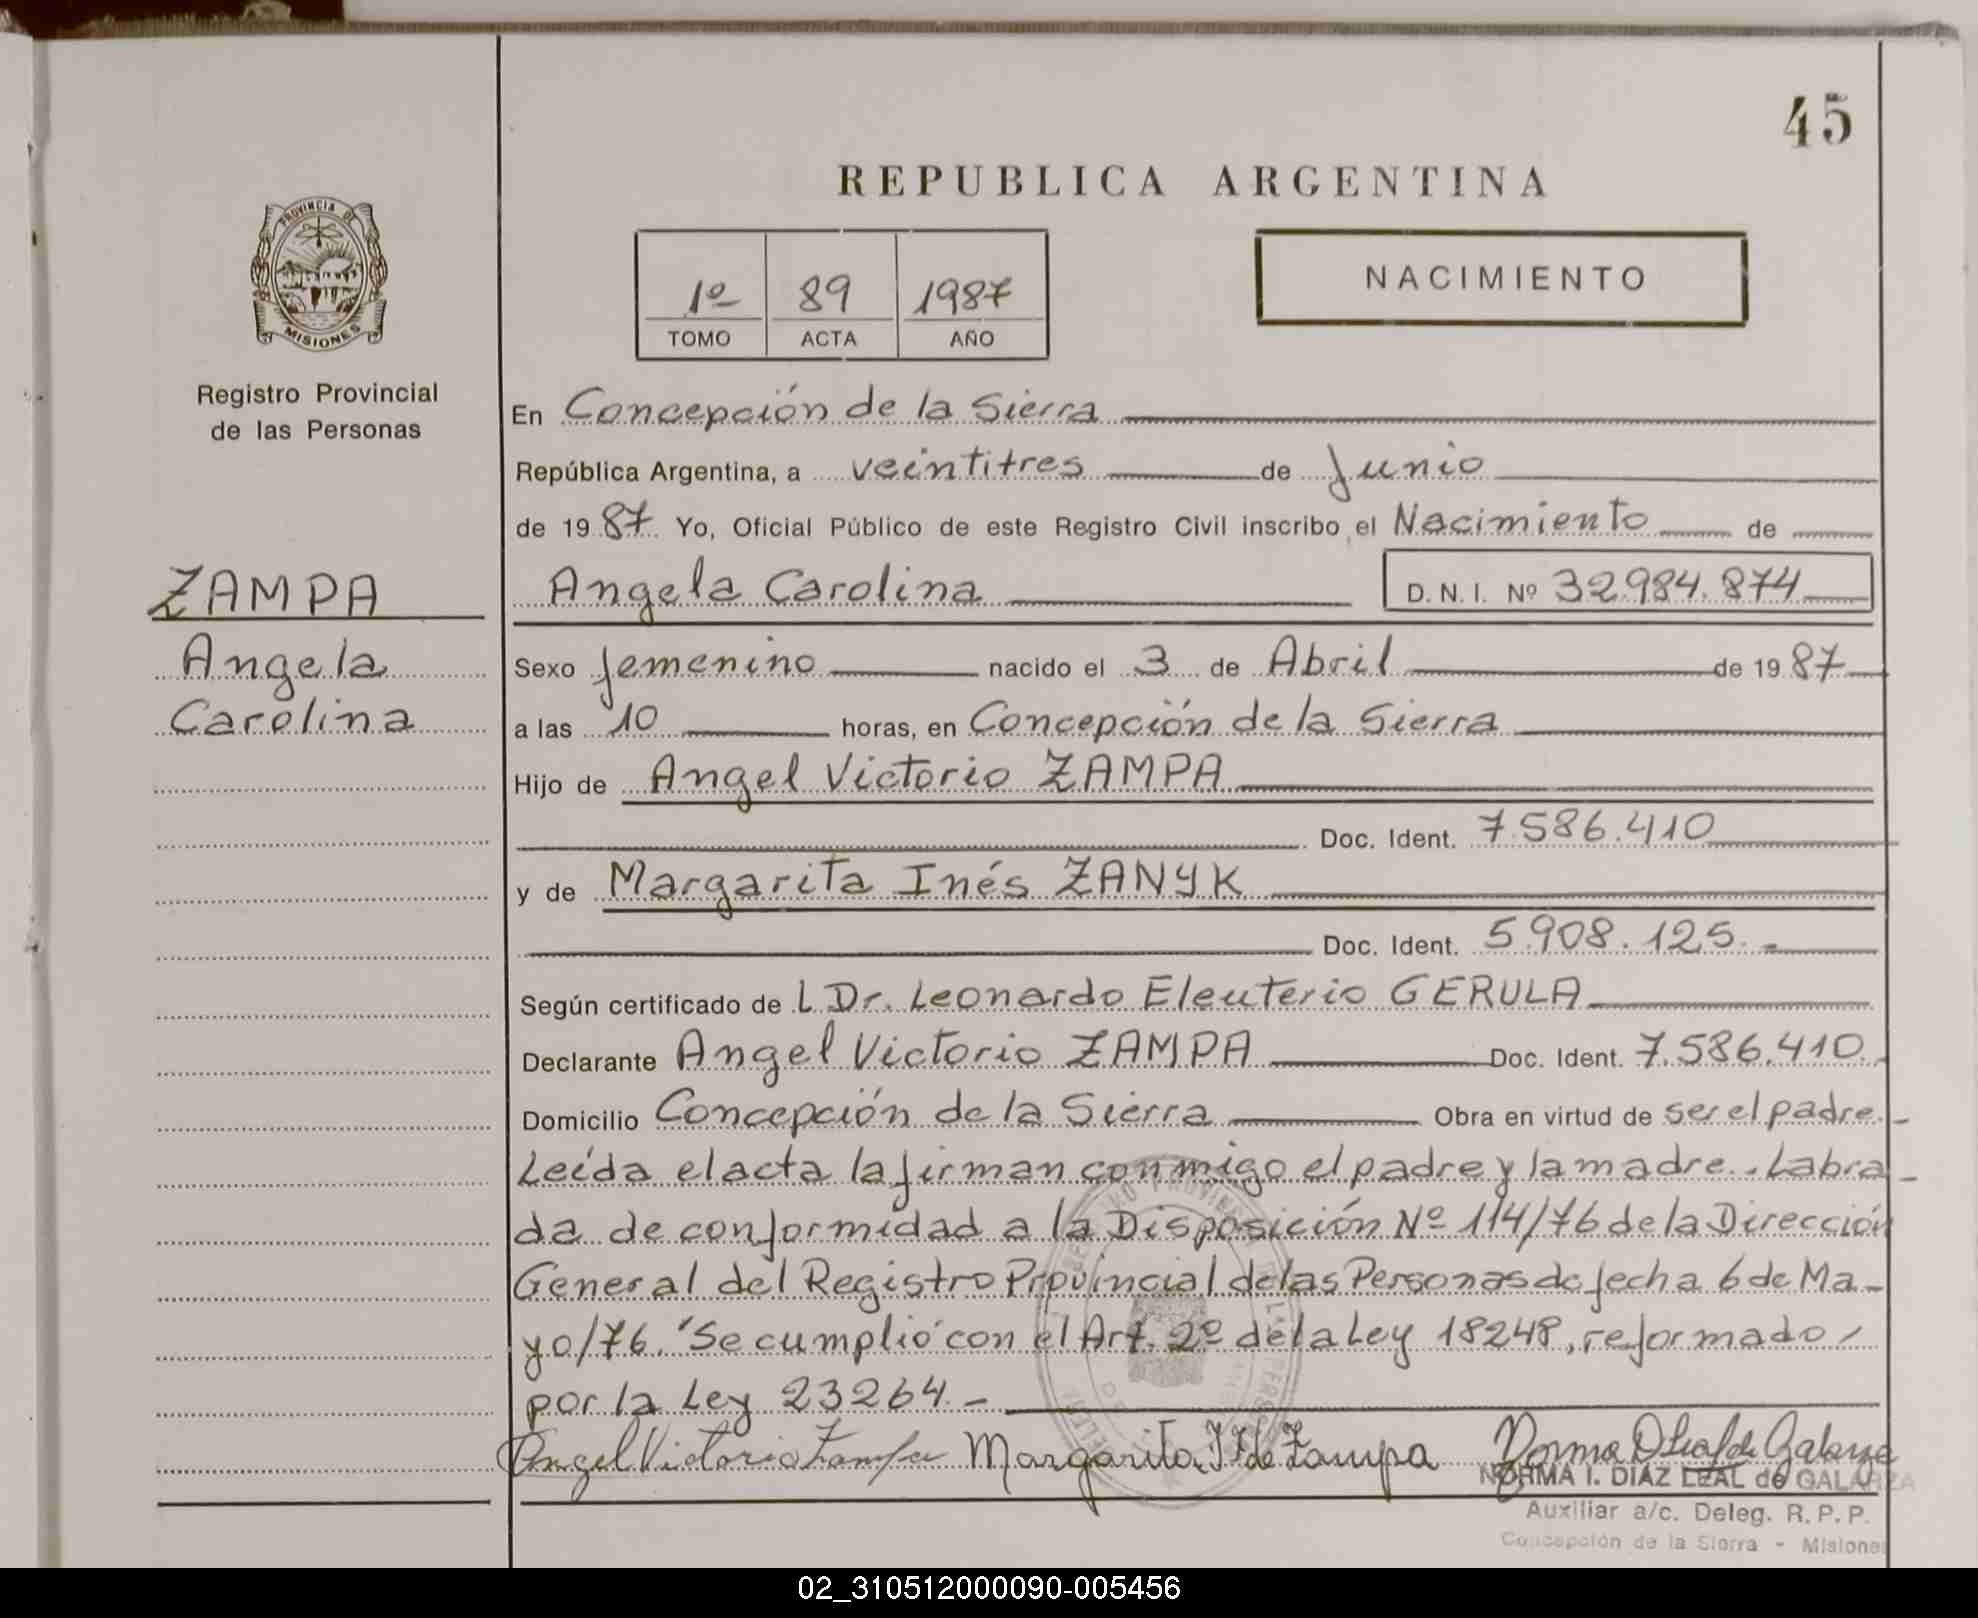 45
REPUBLICA ARGENTINA
PROVINCIA DE
MISIONES
Registro Provincial
de las Personas
1º 89 1987
TOMO ACTA AÑO
NACIMIENTO
En Concepción de la Sierra
República Argentina, a veintitres de Junio
de 1987 Yo, Oficial Público de este Registro Civil inscribo el Nacimiento de
ZAMPA
Angela
Carolina
Angela Carolina D. N. I. Nº 32.984.874
Sexo femenino nacido el 3 de Abril de 1987
a las 10 horas, en Concepción de la Sierra
Hijo de Angel Victorio ZAMPA
Doc. Ident. 7.586.410
y de Margarita Inés ZANYK
Doc. Ident. 5.908.125.-
Según certificado de L Dr. Leonardo Eleuterio GERULA
Declarante Angel Victorio ZAMPA Doc. Ident. 7.586.410
Domicilio Concepción de la Sierra Obra en virtud de ser el padre.-
Leída el acta la firman conmigo el padre y la madre.. Labra-
da de conformidad a la Disposición Nº 114/76 de la Dirección
General del Registro Provincial de las Personas de fecha 6 de Ma-
yo/76. "Se cumplió" con el Art. 2º de la Ley 18248, reformado/
por la Ley 23264.-
Angel Victorio Zampa Margarita I Z de Zampa Norma D Leal de Galarza
NORMA I. DIAZ LEAL de GALARZA
Auxiliar a/c. Deleg. R. P. P.
Concepción de la Sierra - Misiones
02_310512000090-005456